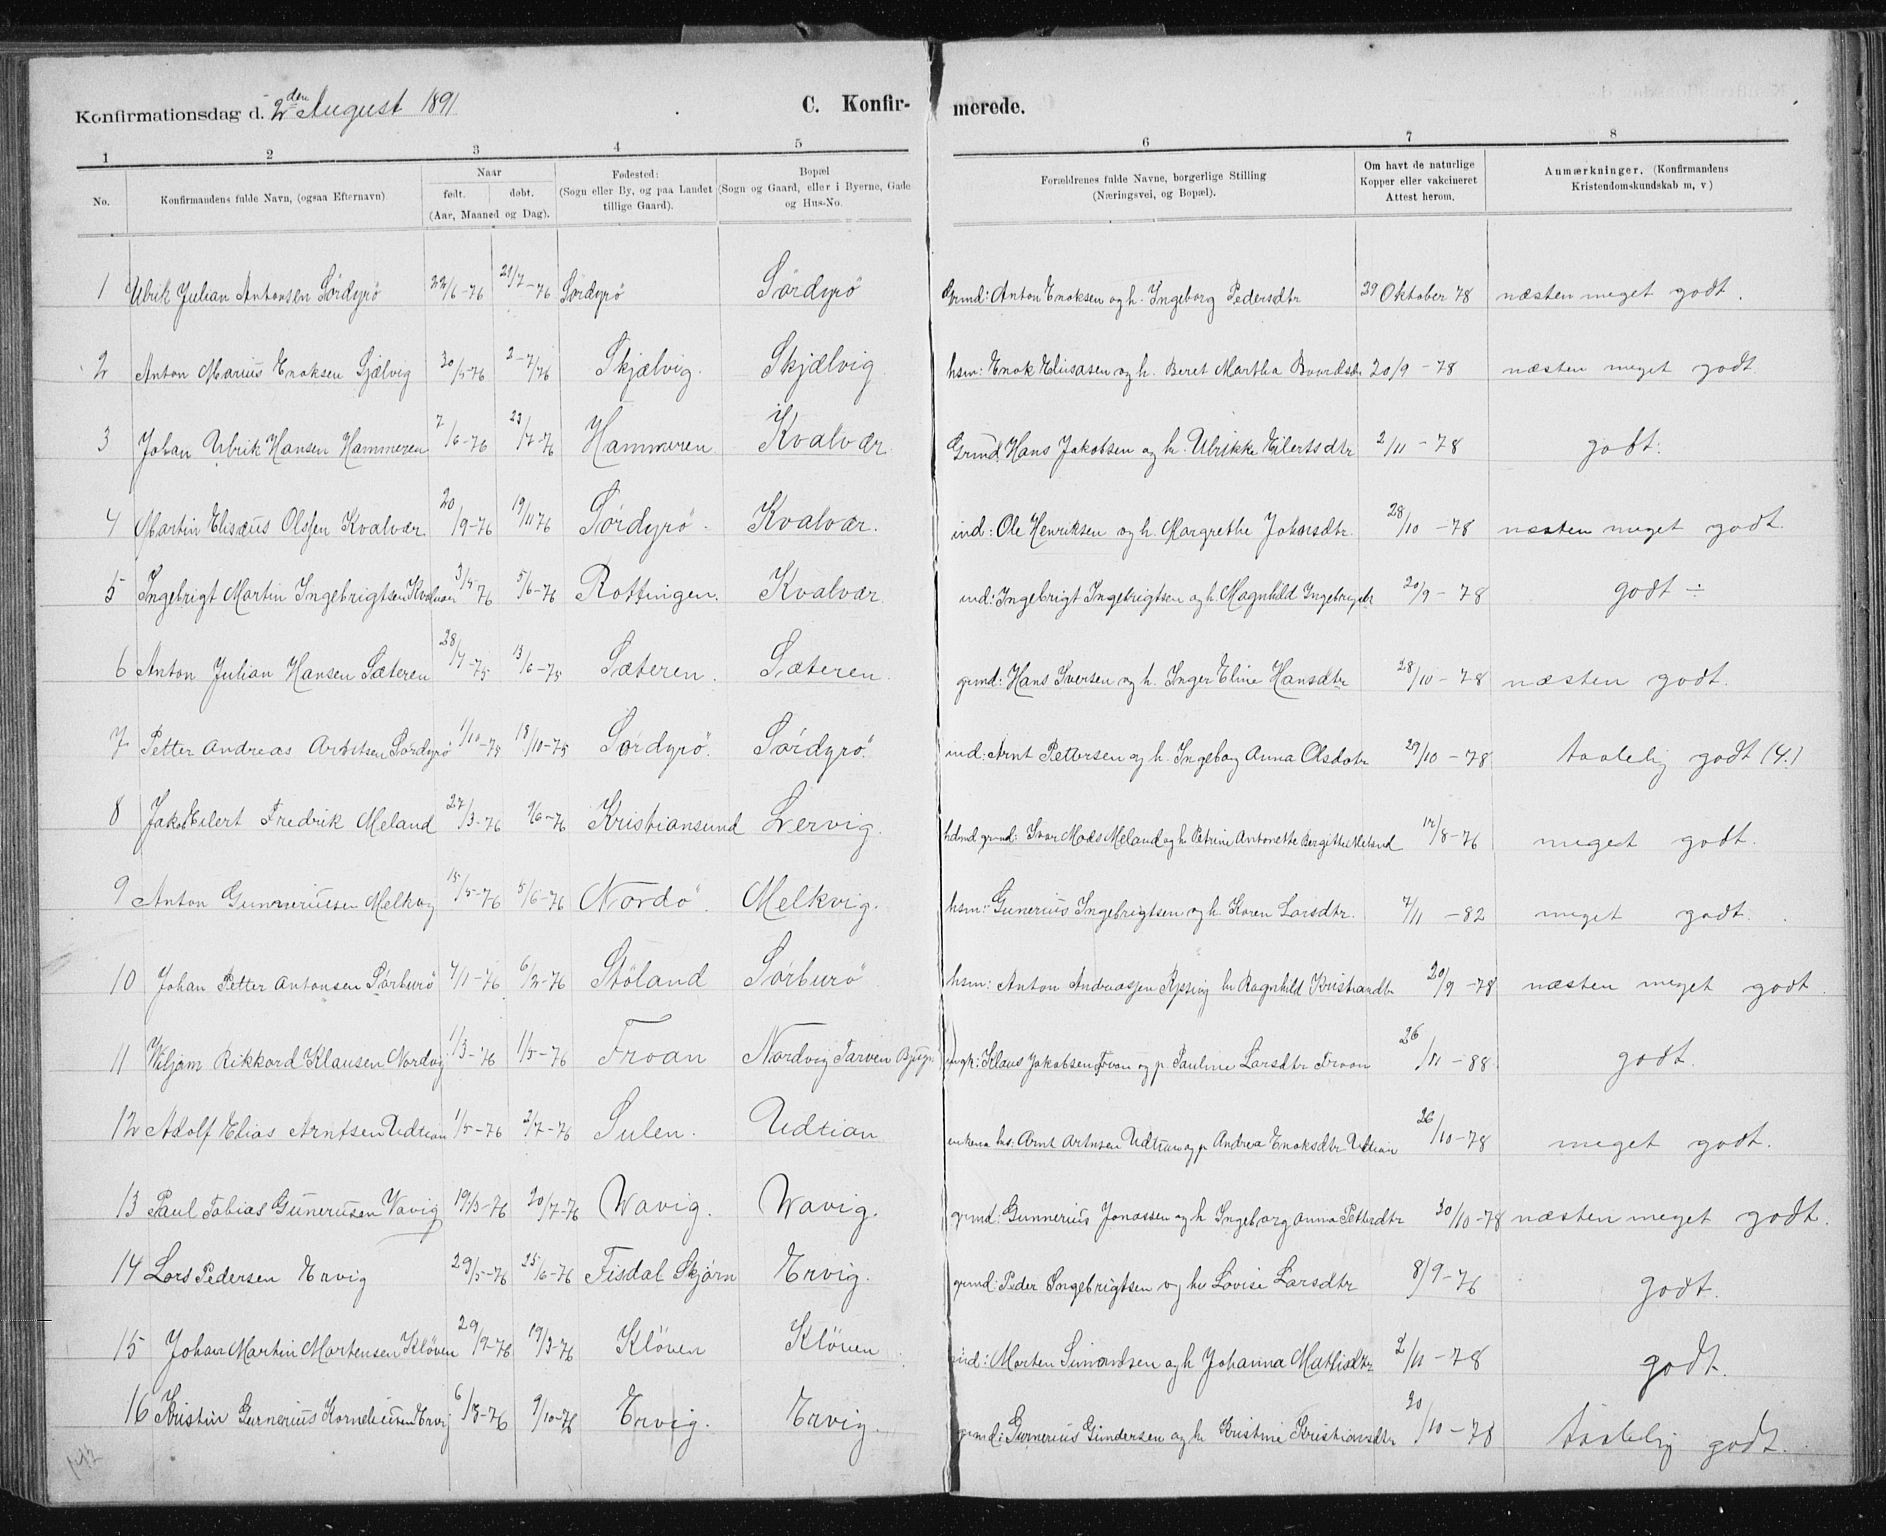 Konfirmationsdag d. 2den August 1891
C. Konfir-
merede.
1 2 3 4 5 6 7 8
No.
Konfirmandens fulde Navn, (ogsaa Efternavn)
Naar
født. døbt.
(Aar, Maaned og Dag).
Fødested:
(Sogn eller By, og paa Landet
tillige Gaard).
Bopæl
(Sogn og Gaard, eller i Byerne, Gade
og Hus-No.
Forældrenes fulde Navne, borgerlige Stilling
(Næringsvei, og Bopæl).
Om havt de naturlige
Kopper eller vakcineret
Attest herom.
Anmærkninger. (Konfirmandens
Kristendomskundskab m, v)
1 Ulrik Julian Antonsen Sørdyrö 22/6-76 21/7-76 Sørdyrö Sørdyrö Grmd: Anton Enoksen og h. Ingeborg Pedersdtr 29 Oktober 78 næsten meget godt.
2 Anton Marius Enoksen Sjælvig 30/5-76 2-7/76 Skjælvig. Skjælvig hsm: Enok Eliasasen og h. Beret Martha 20/9-78 næsten meget godt
3 Johan Ulrik Hansen Hammeren 7/6-76 23/7-76 Hammeren Kvalvær Grmd: Hans Jakobsen og h. Ulrikke Eilertsdtr 2/11-78 godt.
4 Martin Elisæus Olsen Kvalvær 20/9-76 19/11 76 Sørdyrö. Kvalvær. ind: Ole Henriksen og h. Margrethe Johnsdtr. 28/10-78 næsten meget godt.
5 Ingebrigt Martin Ingebrigtsen Kvalvær 3/5 76 5/6-76 Rottingen. Kvalvær ind: Ingebrigt Ingebrigtsen og h. Magnhild 20/9-78 godt ÷
6 Anton Julian Hansen Sæteren 28/4-75 13/6-75 Sæteren. Sæteren. grmd: Hans Iversen og h. Inger Eline Hansdtr 28/10-78 næsten godt.
7 Petter Andreas Arntsen Sørdyrö 1/10-75 18/10-75 Sørdyrö. Sørdyrö. ind: Arnt Pettersen og h. Ingebog Anna Olsdatr 29/10-78 taalelig godt (4.)
8 Jakob Eilert Fredrik Meland 27/3-76 Kristiansund Lervig. grmd: Mads Meland og h. Petrine Antonette Bergitte Meland 12/8-76 meget godt.
9 Anton Gunneriusen Melkvig 15/5-76 5/6-76 Nordö. Melkvig. hsm: Gunerius Ingebrigtsen og h. Karen Larsdtr. 7/11-82 meget godt.
10 Johan Petter Antonsen Sørburö 4/1-76 6/2-76 Stöland Sørburö hsm: Anton Andreassen h. Ragnhild Kristiandtr 20/9-78 næsten meget godt.
11 Wiljam Rikkard Klausen Nordvig 1/3-76 1/5-76 Froan Nordvig Tarven Bjugn ungk: Klaus Jakobsen Froan og p. Pauline Larsdtr Froan 26/11-88 godt.
12 Adolf Elias Arntsen Udtian 1/5-76 2/7-76 Sulen. Udtian Arnt Artnsen Udtian og p Andrea Enoksdtr Udtian 26/10-78 meget godt.
13 Paul Tobias Gunerusen Vavig 19/3-76 20/7-76 Wavig. Wavig. grmd: Gunnerius Jonassen og h Ingeborg Anna Petterdtr 20/10-78 næsten meget godt.
14 Lars Pedersen Ervig 29/5-76 25/6-76 Fisdal Skjørn Ervig. grmd: Peder Ingebrigtsen og h. Lovise Larsdtr 8/9-76 godt.
15 Johan Martin Martensen Kløven 29/2-76 19/3-76 Klöven Klöven ind: Morten Simondsen og h Johanna Mathisdtr 2/11-78 godt.
16 Kristin Gunnerius Korneliusen Ervig 6/3-76 9/10-76 Ervig. Ervig. grmd: Gunerius Gundersen og h. Kristine Kristiansdtr 20/10-78 taalelig godt.
142